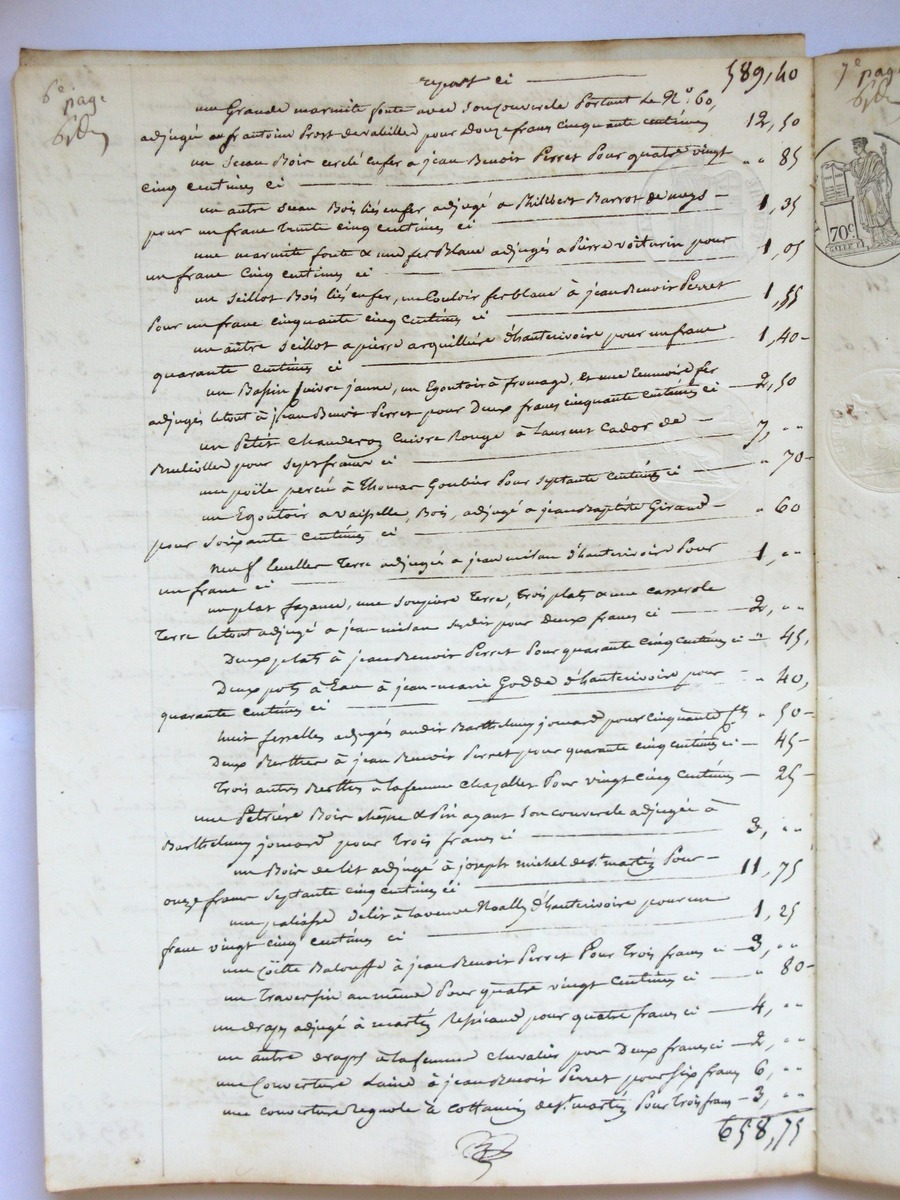 6e page
report ci 589,40
une Grande marmite fonte avec son couvercle Portant Le No. 60,
adjugée au fr antoine Prost pour Douze francs cinquante centimes 12,50
un Seau Bois cerclé en fer a jean Benoit Perret Pour quatre vingt
cinq centimes ci " " 85
un autre Seau Bois liés en fer adjugé a Philibert Barrot
pour un franc trente cinq centimes ci 1,35
une marmite fonte & une fer Blanc adjugés a Pierre Voiturin pour
un franc Cinq centimes ci 1,05
un Seillot Bois liés en fer, un Couloir fer blanc à jean Benoit Perret
Pour un franc cinquante cinq Centimes ci 1,55
un autre Seillot a pierre arquillière d'hauterivoire pour un franc
quarante Centimes ci 1,40
un Bassin Cuivre jaune, un Egoutoir à fromage, Et une Ecumoire fer
adjugés le tout à jean Benoit Perret pour Deux francs cinquante centimes ci 2,50
un Petit Chauderon Cuivre Rouge à Laurent Cador de
pour Sept francs ci 7, " "
une poële percée à Thomas Goubier Pour Septante Centimes ci " 70
un Egoutoir a vaisselle, Bois, adjugé a jean Baptiste Giraud
pour Soixante Centimes ci " 60
neuf Cuiller Terre adjugés a jean milan d'hauterivoire Pour
un franc ci 1, " "
un plat fayance, une Soupière Terre, trois plats & une casserole
Terre le tout adjugé a jean milan Susdit pour deux francs ci 2, " "
Deux plats à jean Benoit Perret Pour quarante cinq Centimes ci " 45,
Deux pots à Eau à jean-marie Godde d'hauterivoire pour
quarante Centimes ci " " 40,
huit fesselles adjugés audit Barthelemy jomard pour Cinquante " 50
Deux Berthes à jean Benoit Perret pour quarante cinq Centimes ci 45
Trois autres Berthes à la femme Chazalles Pour vingt cinq Centimes 25
une Pétrière Bois chêne & Pin ayant Son Couvercle adjugée à
Barthelemy jomard pour Trois francs ci 3, " "
un Bois de lit adjugé à joseph michel de St martin Pour
onze francs Septante cinq centimes ci 11,75
une paliasse de lit à la veuve Noally d'hauterivoire pour un
franc vingt cinq Centimes ci 1,25
une Coitte Balouffe à jean Benoit Perret Pour Trois francs ci 3, " "
un Traversin au même Pour quatre vingt Centimes ci " 80
un draps adjugé à martin pour quatre francs ci 4, " "
un autre draps à la femme Chevalier pour Deux francs ci 2, " "
une Couverture Laine à jean Benoit Perret pour Six francs 6, " "
une couverture à cottancin de St martin Pour trois francs 3, " "
658,75
7e page
70c